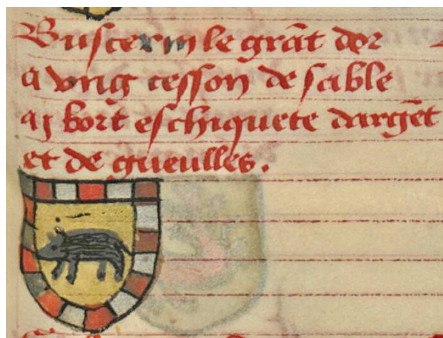 Busterin le grãt dor
a vng cesson de sable
a j bort eschiquete dargẽt
et de gueulles.